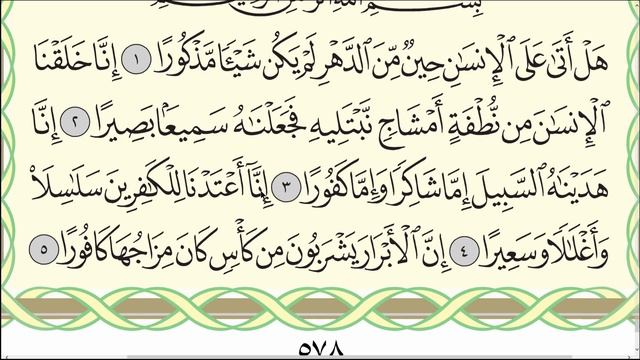 بِسْمِ اللَّهِ الرَّحْمَٰنِ الرَّحِيمِ
هَلْ أَتَىٰ عَلَى ٱلْإِنسَٰنِ حِينٌ مِّنَ ٱلدَّهْرِ لَمْ يَكُن شَيْـًٔا مَّذْكُورًا ١ إِنَّا خَلَقْنَا
ٱلْإِنسَٰنَ مِن نُّطْفَةٍ أَمْشَاجٍ نَّبْتَلِيهِ فَجَعَلْنَٰهُ سَمِيعًۢا بَصِيرًا ٢ إِنَّا
هَدَيْنَٰهُ ٱلسَّبِيلَ إِمَّا شَاكِرًا وَإِمَّا كَفُورًا ٣ إِنَّآ أَعْتَدْنَا لِلْكَٰفِرِينَ سَلَٰسِلَا۟
وَأَغْلَٰلًا وَسَعِيرًا ٤ إِنَّ ٱلْأَبْرَارَ يَشْرَبُونَ مِن كَأْسٍ كَانَ مِزَاجُهَا كَافُورًا ٥
٥٧٨